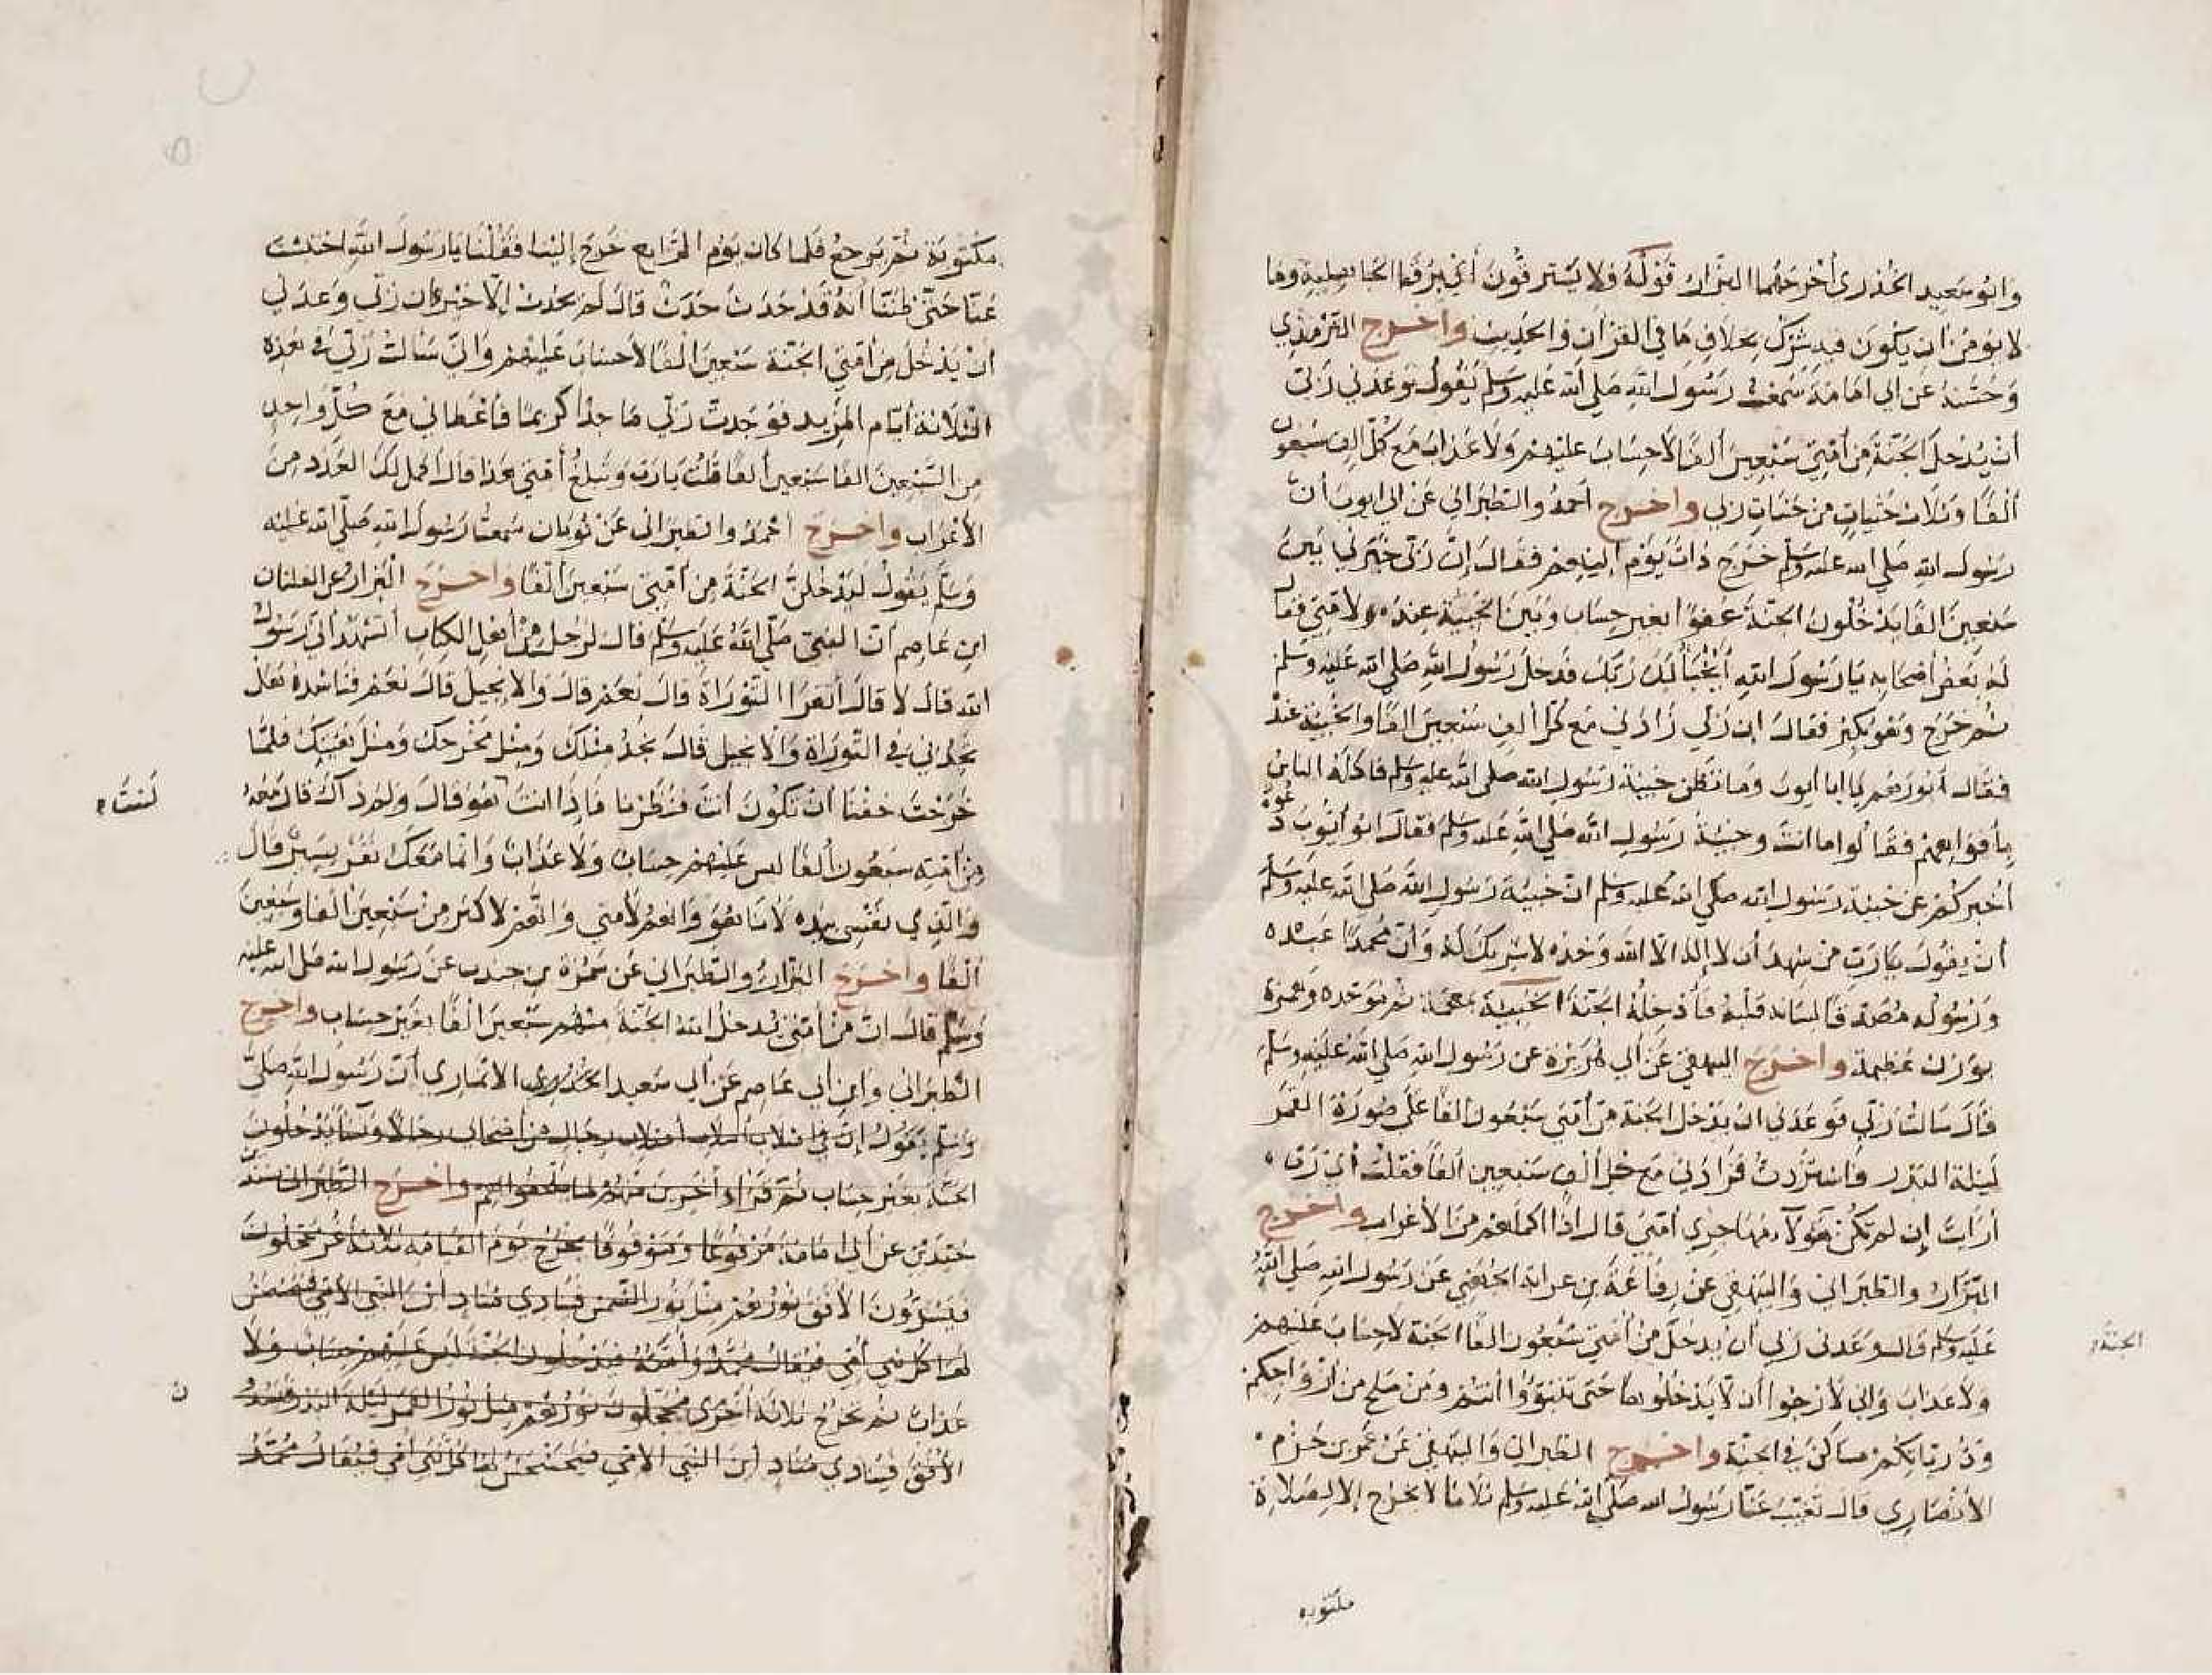 وابو سعيد الخدري أخرجهما البزار قوله ولا يسترقون أي برقي الجاهلية وما
لا يومن أن يكون فيه شرك بخلاف ما في القرآن والحديث واخرج الترمذي
وحسنه عن ابي امامة سمعت رسول الله صلي الله عليه وسلم يقول وعدني ربي
أن يدخل الجنة من أمتي سبعين ألفا لا حساب عليهم ولا عذاب مع كل الف سبعون
ألفا وثلاث حثيات من حثيات ربي واخرج احمد والطبراني عن ابي ايوب أن
رسول الله صلي الله عليه وسلم خرج ذات يوم إليهم فقال إن ربي خيرني بين
سبعين الفا يدخلون الجنة عفوا بغير حساب وبين الخبيئة عنده لامتي فقال
له بعض أصحابه يا رسول الله أيخبأ لك ربك فدخل رسول الله صلي الله عليه وسلم
ثم خرج وهو يكبر فقال إن ربي زادني مع كل ألف سبعين الفا والخبيئة عنده
فقال أبو رهم يا ابا أيوب وما تظن خبيئة رسول الله صلي الله عليه وسلم فاكله الناس
بأفواههم فقالوا ما انت وخبيئة رسول الله صلي الله عليه وسلم فقال ابو أيوب دعوه
أخبركم عن خبيئة رسول الله صلي الله عليه وسلم ان خبيئة رسول الله صلي الله عليه وسلم
أن يقول يا رب من شهد أن لا إله الا الله وحده لا شريك له وأن محمدا عبده
ورسوله مصدقا لسانه قلبه فأدخله الجنة
عظيمة واخرج البيهقي عن أبي هريرة عن رسول الله صلي الله عليه وسلم
قال سالت ربي فوعدني ان يدخل الجنة من أمتي سبعون الفا على صورة القمر
ليلة البدر فاستزدت فزادني مع كل ألف سبعين الفا فقلت أي ربي
أرأيت إن لم تكن هؤلاء مهاجري أمتي قال اذا اكملهم من الأعراب واخرج
البزار والطبراني والبيهقي عن رفاعة بن عرابة الجهني عن رسول الله صلي الله
عليه وسلم قال وعدني ربي أن يدخل من أمتي سبعون الفا الجنة لا حساب عليهم
الجنة
ولا عذاب واني لأرجوا أن لا يدخلوها حتى تتبوؤا أنتم ومن صلح من ازواجكم
وذرياتكم مساكن في الجنة واخرج الطبراني والبيهقي عن عمرو بن حزم
الأنصاري قال تغيب عنا رسول الله صلي الله عليه وسلم ثلاثا لا يخرج إلا لصلاة
مكتوبة
مكتوبة ثم يرجع فلما كان يوم الرابع خرج إلينا فقلنا يا رسول الله احتبست
عنا حتى ظننا أنه قد حدث حدث قال لم يحدث إلا خير إن ربي وعدني
أن يدخل من أمتي الجنة سبعين ألفا لا حساب عليهم وإني سالت ربي في هذه
الثلاثة أيام المزيد فوجدت ربي ماجدا كريما فأعطاني مع كل واحد
من السبعين الفا سبعين ألفا قلت يا رب وتبلغ أمتي هذا قال اكمل لك العدد من
الأعراب واخرج احمد والطبراني عن ثوبان سمعت رسول الله صلي الله عليه
وسلم يقول ليدخلن الجنة من أمتي سبعين ألفا واخرج البزار عن الفلتان
ابن عاصم أن النبي صلي الله عليه وسلم قال لرجل من أهل الكتاب أتشهد أني رسول
الله قال لا قال أتقرا التوراة قال نعم قال والانجيل قال نعم فناشده هل
تجدني في التوراة والانجيل قال نجد مثلك ومثل مخرجك ومثل هيئتك فلما
خرجت خفنا أن تكون أنت فنظرنا فإذا انت لست هو قال ولم ذاك قال معه
لست
من أمته سبعون ألفا ليس عليهم حساب ولا عذاب وانما معك نفر يسير قال
والذي نفسي بيده لأنا هو وإنهم لأمتي وانهم لأكثر من سبعين ألفا وسبعين
ألفا واخرج البزار والطبراني عن سمرة بن جندب عن رسول الله صلي الله عليه
وسلم قال ان من أمتي يدخل الله الجنة منهم سبعين الفا بغير حساب واخرج
الطبراني وابن أبي عاصم عن أبي سعيد الانماري أن رسول الله صلي
وسلم يقول إن في اصلاب أصلاب أصلاب رجال من أصحابي رجالا ونساء يدخلون
الجنة بغير حساب ثم قرا وآخرين منهم لما يلحقوا بهم واخرج الطبراني بسند
جيد عن أبي امامة مرفوعا وموقوفا يخرج يوم القيامة ثلاثة غر محجلون
فيسدون الأفق نورهم مثل نور الشمس فينادي مناد أين النبي الأمي
أمتي فيقال محمد وأمته فيدخلون الجنة ليس عليهم حساب ولا
عذاب ثم يخرج ثلاثة أخرى محجلون نورهم مثل نور القمر ليلة البدر فيسد
الأفق فينادي مناد أين النبي الامي أمي فيقال محمد